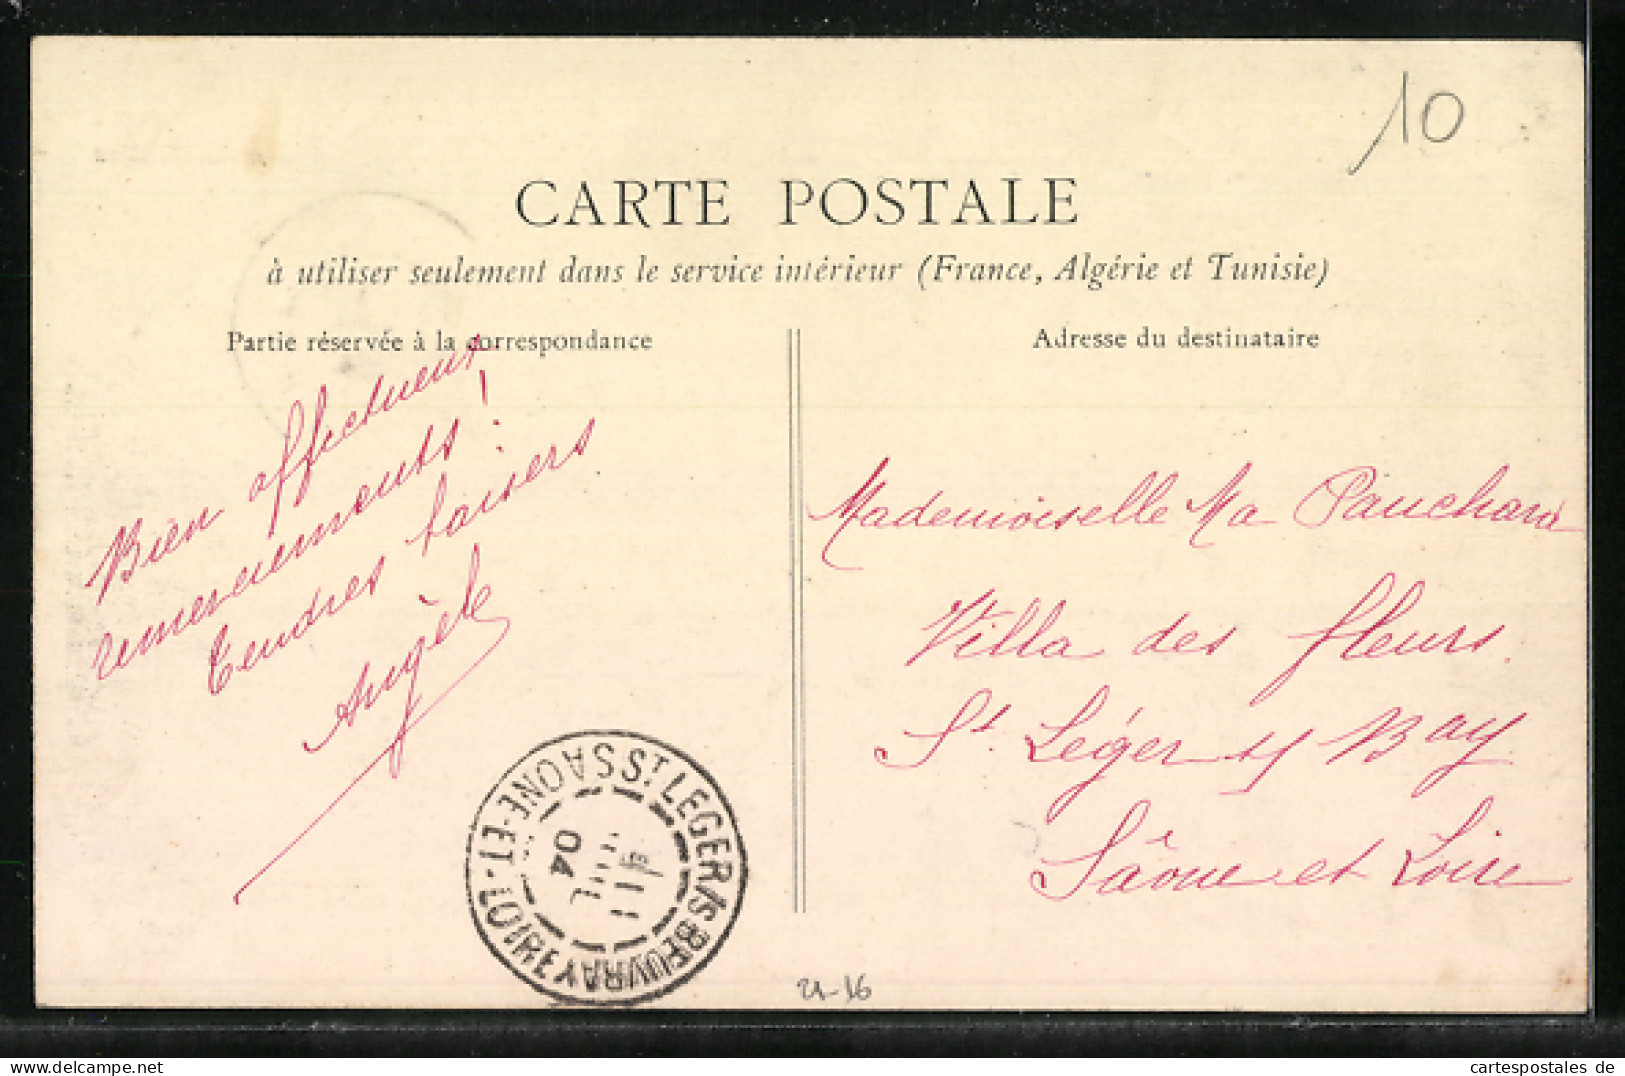 10
CARTE POSTALE
à utiliser seulement dans le service intérieur (France, Algérie et Tunisie)
Partie réservée à la correspondance
Bien affectueux
remerciements !
Tendres baisers
Angèle
Adresse du destinataire
Mademoiselle Ma Pauchard
Villa des fleurs.
St. Léger s/ Bay
Saône et Loire
ST LEGER/S-BEUVRAY
SAONE-ET-LOIRE
11
JUIL
04
21-16
cartespostales de